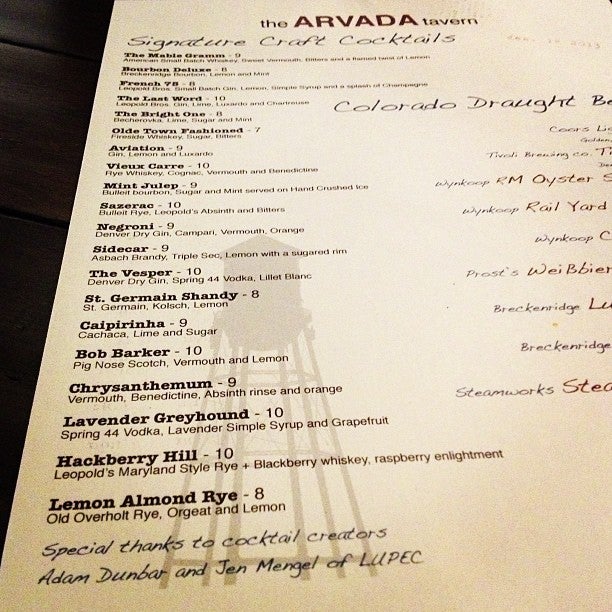 the ARVADA tavern
Signature Craft Cocktails
The Mable Gramm - 9
American Small Batch Whiskey, Sweet Vermouth, Bitters and a flamed twist of Lemon
Bourbon Deluxe - 8
Breckenridge Bourbon, Lemon and Mint
French 75 - 8
Leopold Bros. Small Batch Gin, Lemon, Simple Syrup and a splash of Champagne
The Last Word - 10
Leopold Bros. Gin, Lime, Luxardo and Chartreuse
The Bright One - 8
Becherovka, Lime, Sugar and Mint
Olde Town Fashioned - 7
Fireside Whiskey, Sugar, Bitters
Aviation - 9
Gin, Lemon and Luxardo
Vieux Carre - 10
Rye Whiskey, Cognac, Vermouth and Benedictine
Mint Julep - 9
Bulleit bourbon, Sugar and Mint served on Hand Crushed Ice
Sazerac - 10
Bulleit Rye, Leopold's Absinth and Bitters
Negroni - 9
Denver Dry Gin, Campari, Vermouth, Orange
Sidecar - 9
Asbach Brandy, Triple Sec, Lemon with a sugared rim
The Vesper - 10
Denver Dry Gin, Spring 44 Vodka, Lillet Blanc
St. Germain Shandy - 8
St. Germain, Kolsch, Lemon
Caipirinha - 9
Cachaca, Lime and Sugar
Bob Barker - 10
Pig Nose Scotch, Vermouth and Lemon
Chrysanthemum - 9
Vermouth, Benedictine, Absinth rinse and orange
Lavender Greyhound - 10
Spring 44 Vodka, Lavender Simple Syrup and Grapefruit
Hackberry Hill - 10
Leopold's Maryland Style Rye + Blackberry whiskey, raspberry enlightment
Lemon Almond Rye - 8
Old Overholt Rye, Orgeat and Lemon
Special thanks to cocktail creators
Adam Dunbar and Jen Mengel of LUPEC
Colorado Draught Be
Coors Li
Golden,
Tivoli Brewing Co. Ti
De
Wynkoop RM Oyster S
Wynkoop Rail Yard
Wynkoop C
Prost's Weißbier
Breckenridge Lu
Breckenridge
Steamworks Stea